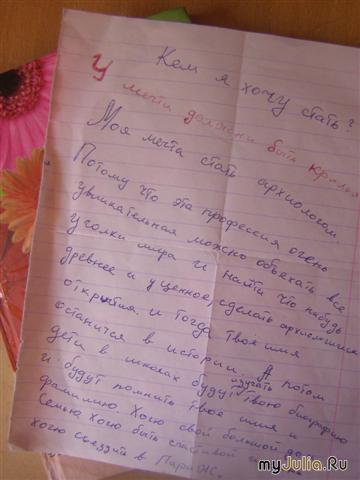 Кем я хочу стать?
У мечты должны быть крылья
Моя мечта стать архиологом.
Потому что эта профессия очень
увликательная можно объехать все
уголки мира и найти что нибудь
древнее и уценное, сделать
открытия. и тогда твоё имя
останится в истории. А потом
дети в школах будут изучать твою биографию
и будут помнить твоё имя и
фамилию. Хочу свой большой дом
семью. Хочу быть счасливой
хочу съездить в Париж.
myJulia.Ru